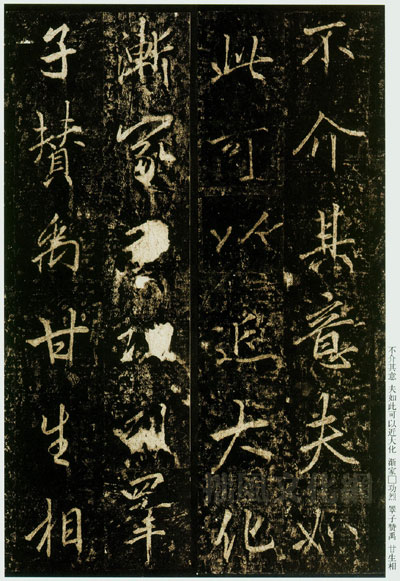 不介其意夫如
此可以追大化
漸家功烈睪
子贊禹甘生相
不介其意 夫如此可以近大化 漸家□功烈 睪子贊禹 甘生相